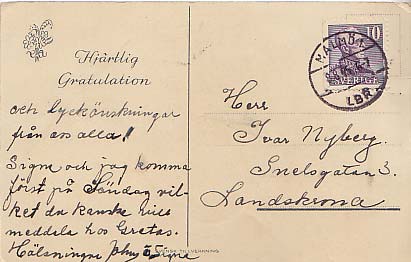 Hjärtlig
Gratulation
och lyckönskningar
från oss alla!
Signe och jag komma
först på Söndag vil-
ket du kanske
meddela hos Gretas.
Hälsningar John o Signe
MALMÖ 1
LBR
10
SVERIGE
Herr
Ivar Nyberg.
Snelsgatan 3.
Landskrona
SVENSK TILLVERKNING